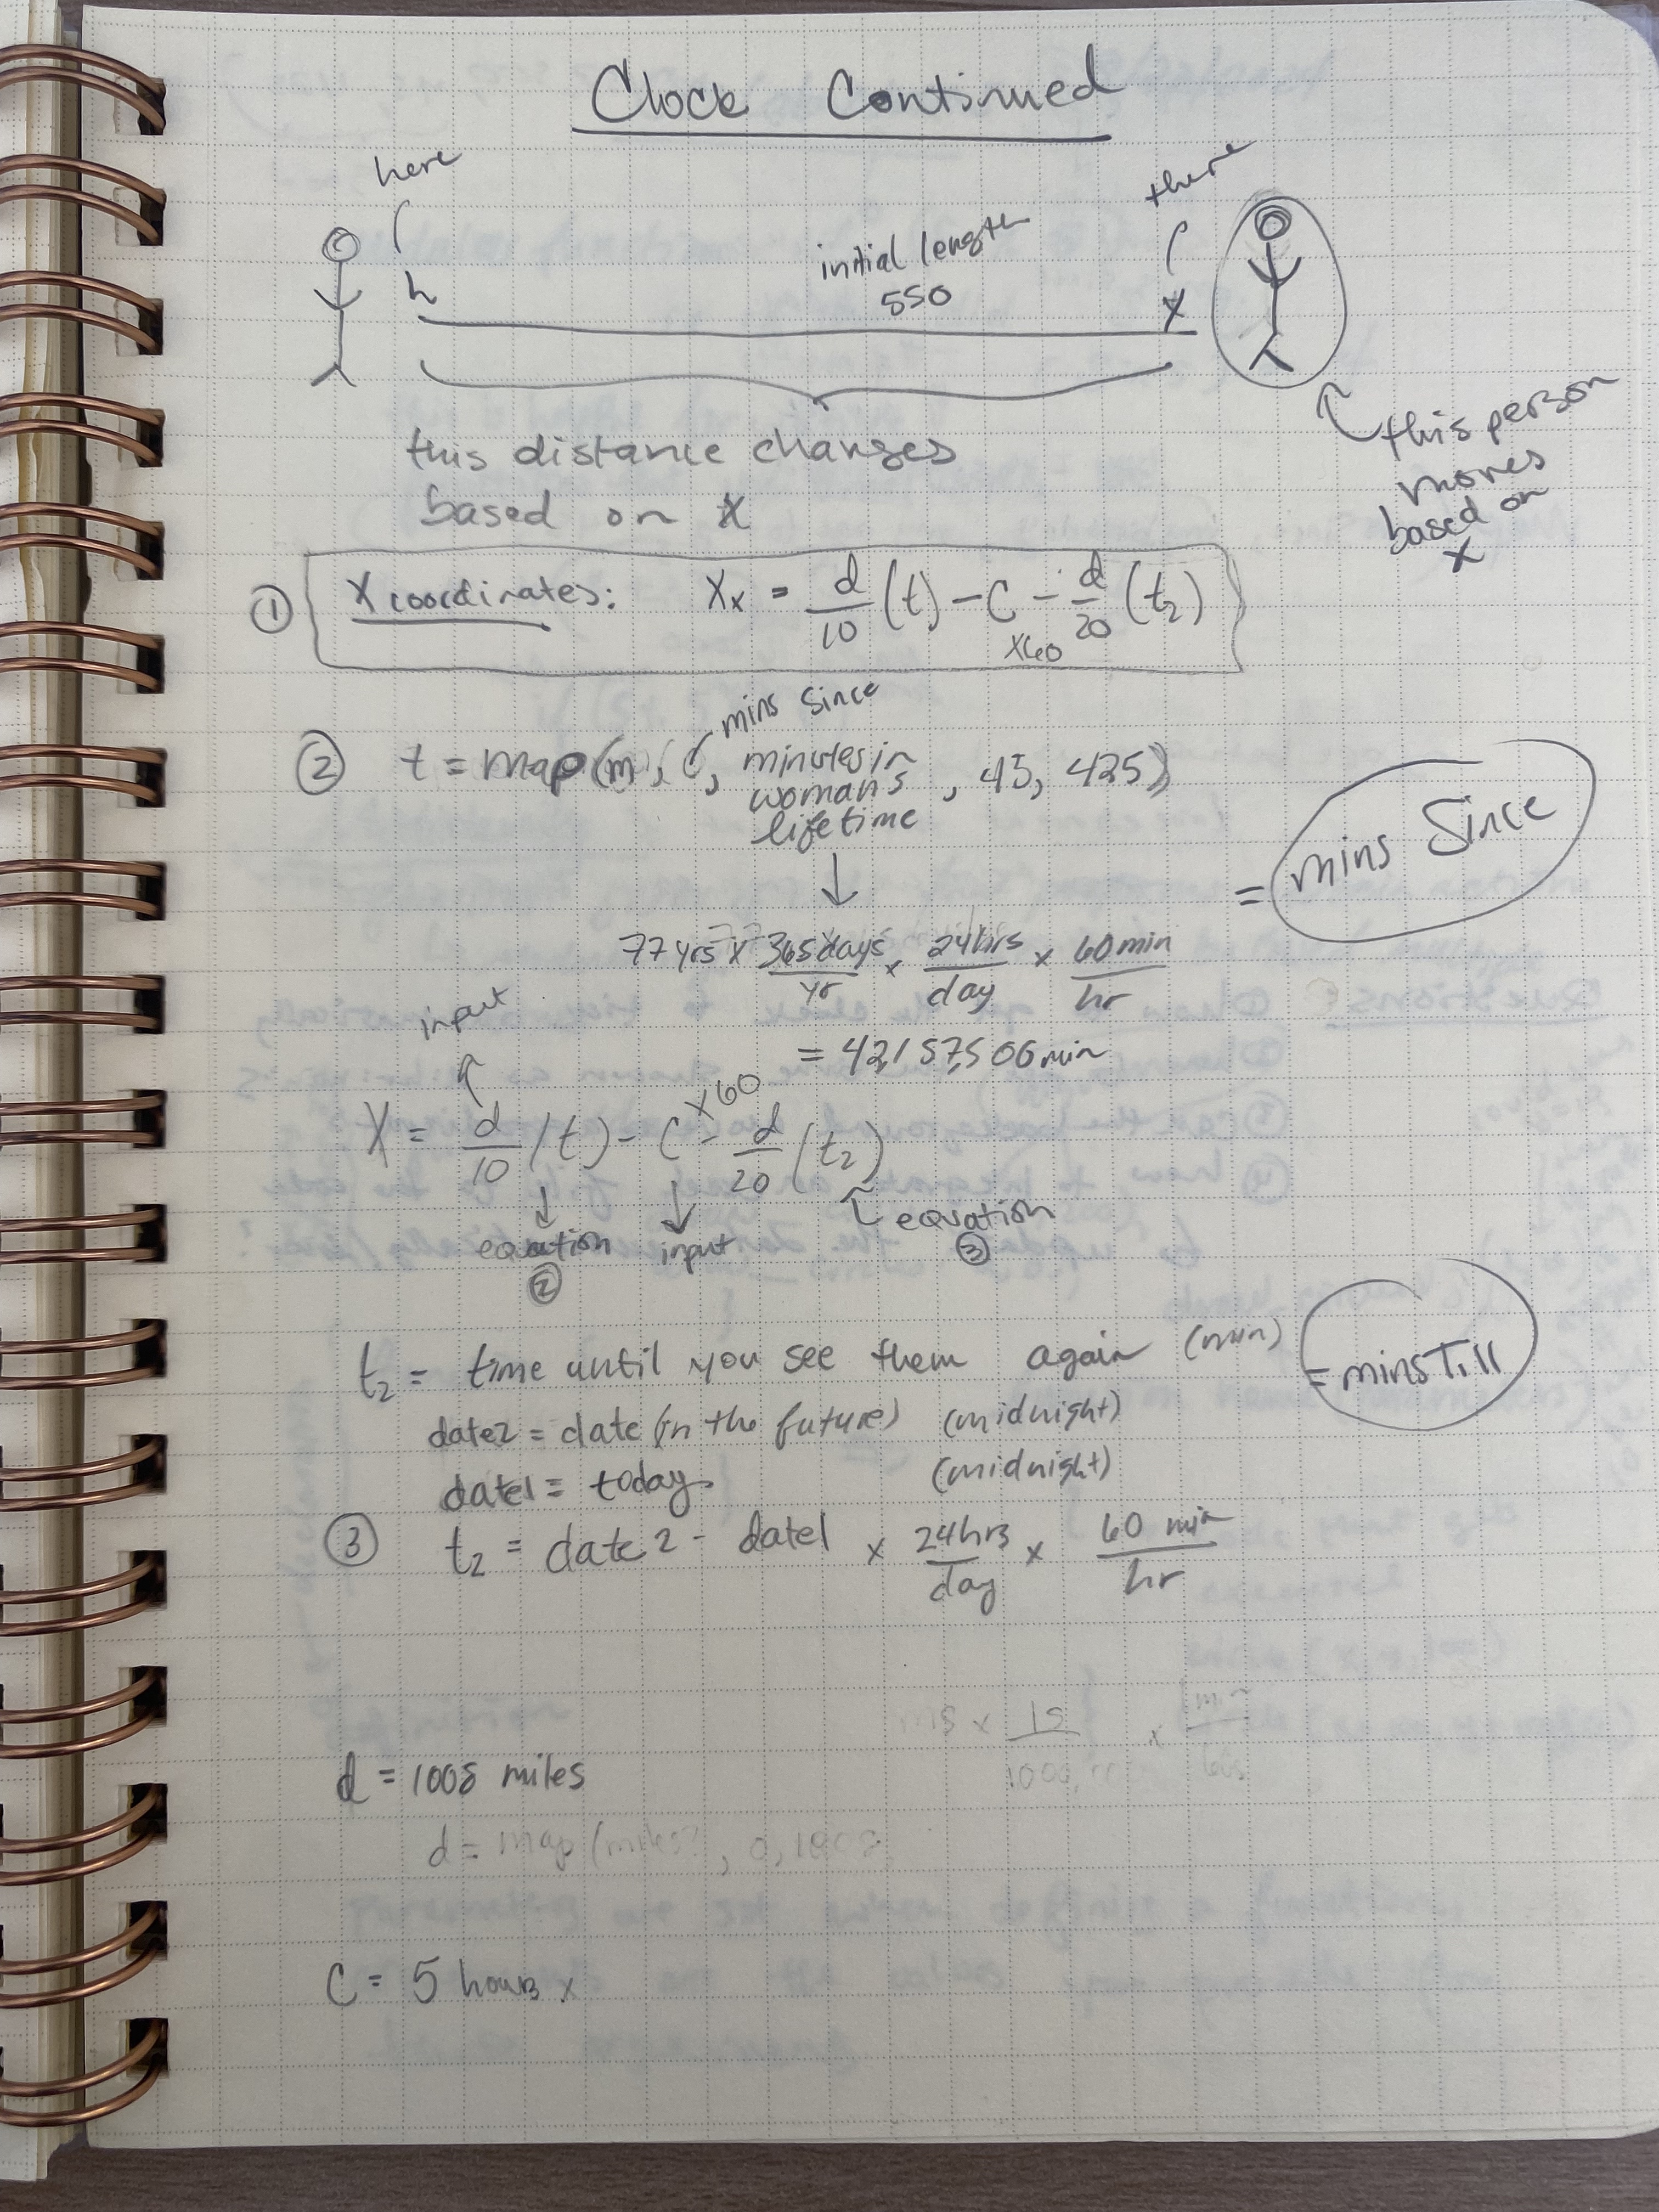 Clock Continued
here
there
initial length
550
h
x
this distance changes
based on x
this person
moves
based on
x
① X coordinates: Xx = d/10 (t) - C - d/20 (t2)
x60
mins since
② t = map(m, 0, minutes in
woman's
lifetime
, 45, 425)
= mins Since
77 yrs x 365 days/yr x 24 hrs/day x 60 min/hr
= 42,157,506 min
input
X = d/10 (t) - C x60 - d/20 (t2)
equation
②
input
equation
③
t2 = time until you see them again (min)
= minsTill
date2 = date (in the future) (midnight)
date1 = today (midnight)
③ t2 = date2 - date1 x 24 hrs/day x 60 min/hr
ms x 1s/1000 x 1min
d = 1008 miles
d = map (miles?, 0, 
C = 5 hours x